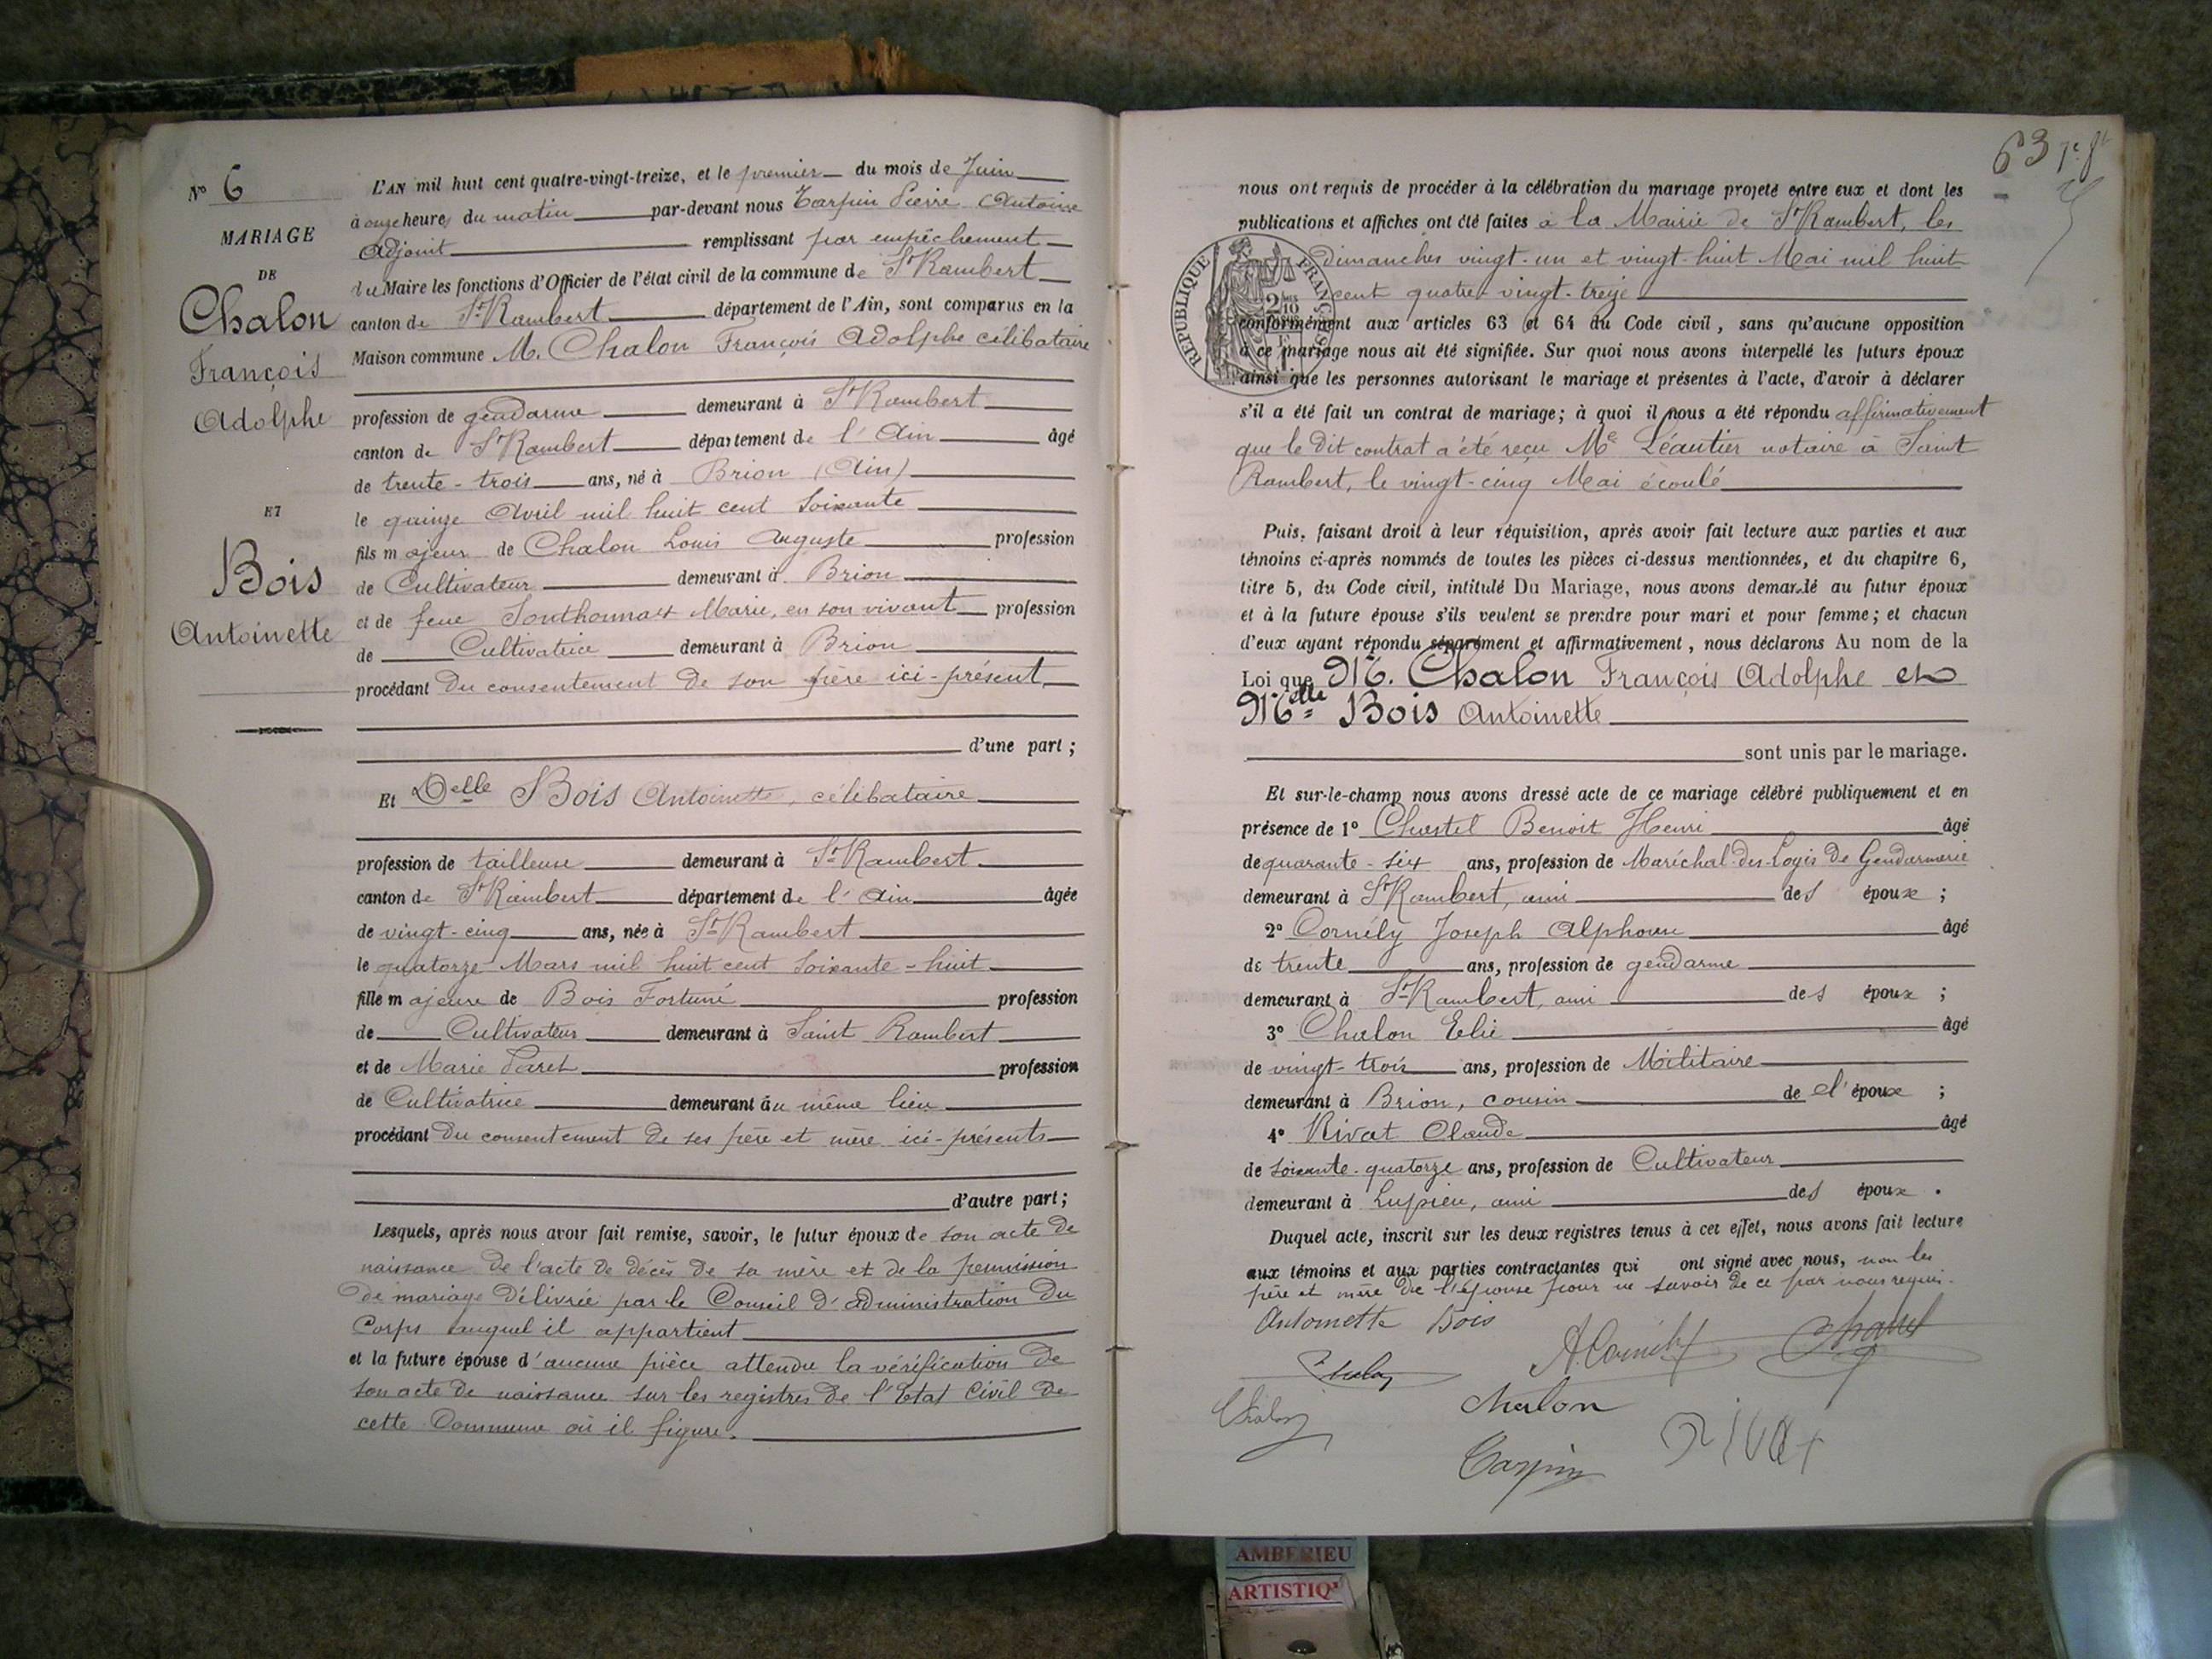 N° 6
MARIAGE
DE
Chalon
François
Adolphe
ET
Bois
Antoinette
L'AN mil huit cent quatre-vingt-treize, et le premier du mois de Juin
à onze heures du matin par-devant nous Tarpin Pierre Antoine
Adjoint remplissant par empêchement
du Maire les fonctions d'Officier de l'état civil de la commune de St Rambert
canton de St Rambert département de l'Ain, sont comparus en la
Maison commune M. Chalon François Adolphe célibataire
profession de gendarme demeurant à St Rambert
canton de St Rambert département de l'Ain âgé
de trente-trois ans, né à Brion (Ain)
le quinze Avril mil huit cent soixante
fils majeur de Chalon Louis Auguste profession
de Cultivateur demeurant à Brion
et de feue Sonthonnax Marie, en son vivant profession
de Cultivatrice demeurant à Brion
procédant du consentement de son père ici-présent
d'une part ;
Et Delle Bois Antoinette, célibataire
profession de tailleuse demeurant à St Rambert
canton de St Rambert département de l'Ain âgée
de vingt-cinq ans, née à St Rambert
le quatorze Mars mil huit cent soixante-huit
fille majeure de Bois Fortuné profession
de Cultivateur demeurant à Saint Rambert
et de Marie profession
de Cultivatrice demeurant au même lieu
procédant du consentement de ses père et mère ici-présents
d'autre part ;
Lesquels, après nous avoir fait remise, savoir, le futur époux de son acte de
naissance de l'acte de décès de sa mère et de la permission
de mariage délivrée par le Conseil d'administration du
Corps auquel il appartient
et la future épouse d'aucune pièce attendu la vérification de
son acte de naissance sur les registres de l'Etat Civil de
cette Commune où il figure.
63
nous ont requis de procéder à la célébration du mariage projeté entre eux et dont les
publications et affiches ont été faites à la Mairie de St Rambert, les
Dimanches vingt-un et vingt-huit Mai mil huit
cent quatre-vingt-treize
REPUBLIQUE FRANÇAISE
conformément aux articles 63 et 64 du Code civil, sans qu'aucune opposition
à ce mariage nous ait été signifiée. Sur quoi nous avons interpellé les futurs époux
ainsi que les personnes autorisant le mariage et présentes à l'acte, d'avoir à déclarer
s'il a été fait un contrat de mariage ; à quoi il nous a été répondu affirmativement
que le dit contrat a été reçu Me Léautier notaire à Saint
Rambert, le vingt-cinq Mai écoulé
Puis, faisant droit à leur réquisition, après avoir fait lecture aux parties et aux
témoins ci-après nommés de toutes les pièces ci-dessus mentionnées, et du chapitre 6,
titre 5, du Code civil, intitulé Du Mariage, nous avons demandé au futur époux
et à la future épouse s'ils veulent se prendre pour mari et pour femme ; et chacun
d'eux ayant répondu séparément et affirmativement, nous déclarons Au nom de la
Loi que M. Chalon François Adolphe et
Melle Bois Antoinette
sont unis par le mariage.
Et sur-le-champ nous avons dressé acte de ce mariage célébré publiquement et en
présence de 1° Chastel Benoit Henri âgé
de quarante-six ans, profession de Maréchal-des-Logis de Gendarmerie
demeurant à St Rambert, ami des époux ;
2° Cornély Joseph Alphonse âgé
de trente ans, profession de gendarme
demeurant à St Rambert, ami des époux ;
3° Chalon Elie âgé
de vingt-trois ans, profession de Militaire
demeurant à Brion, cousin de l'époux ;
4° Rivat Claude âgé
de soixante-quatorze ans, profession de Cultivateur
demeurant à Lupieu, ami des époux.
Duquel acte, inscrit sur les deux registres tenus à cet effet, nous avons fait lecture
aux témoins et aux parties contractantes qui ont signé avec nous, non les
père et mère de l'épouse pour ne savoir de ce par nous requis.
Antoinette Bois
A. Cornély Chastel
Chalon
Chalon
Chalon
Rivat
Tarpin
AMBERIEU
ARTISTIQ'